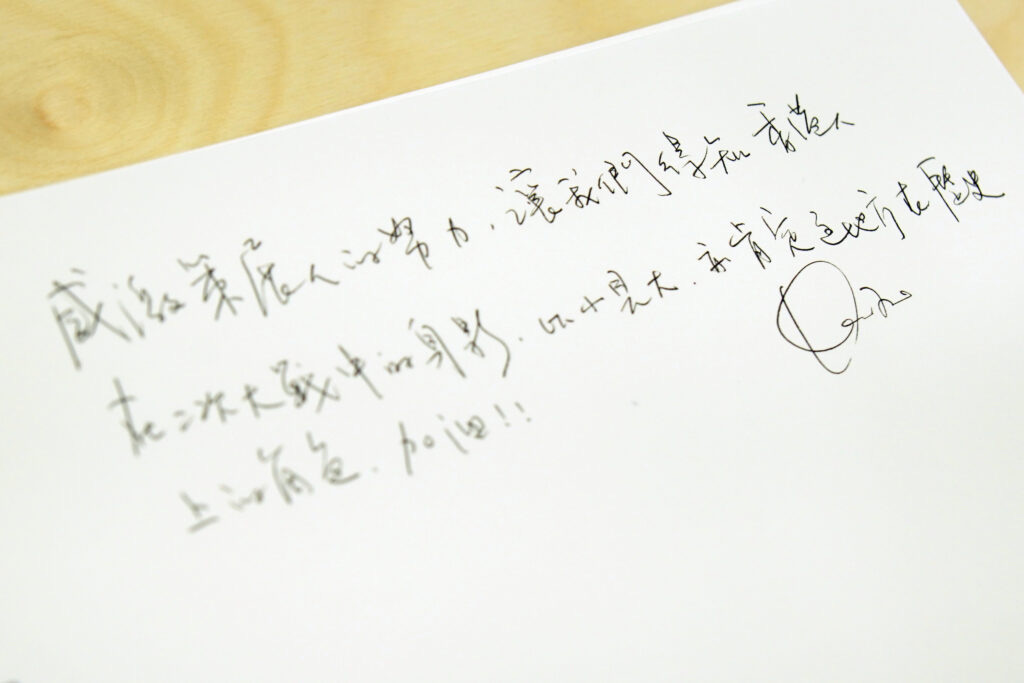 感激策展人的努力，讓我們得知香港人
在二次大戰中的身影，以小見大，亦肯定這地方在歷史
上的角色，加油!!